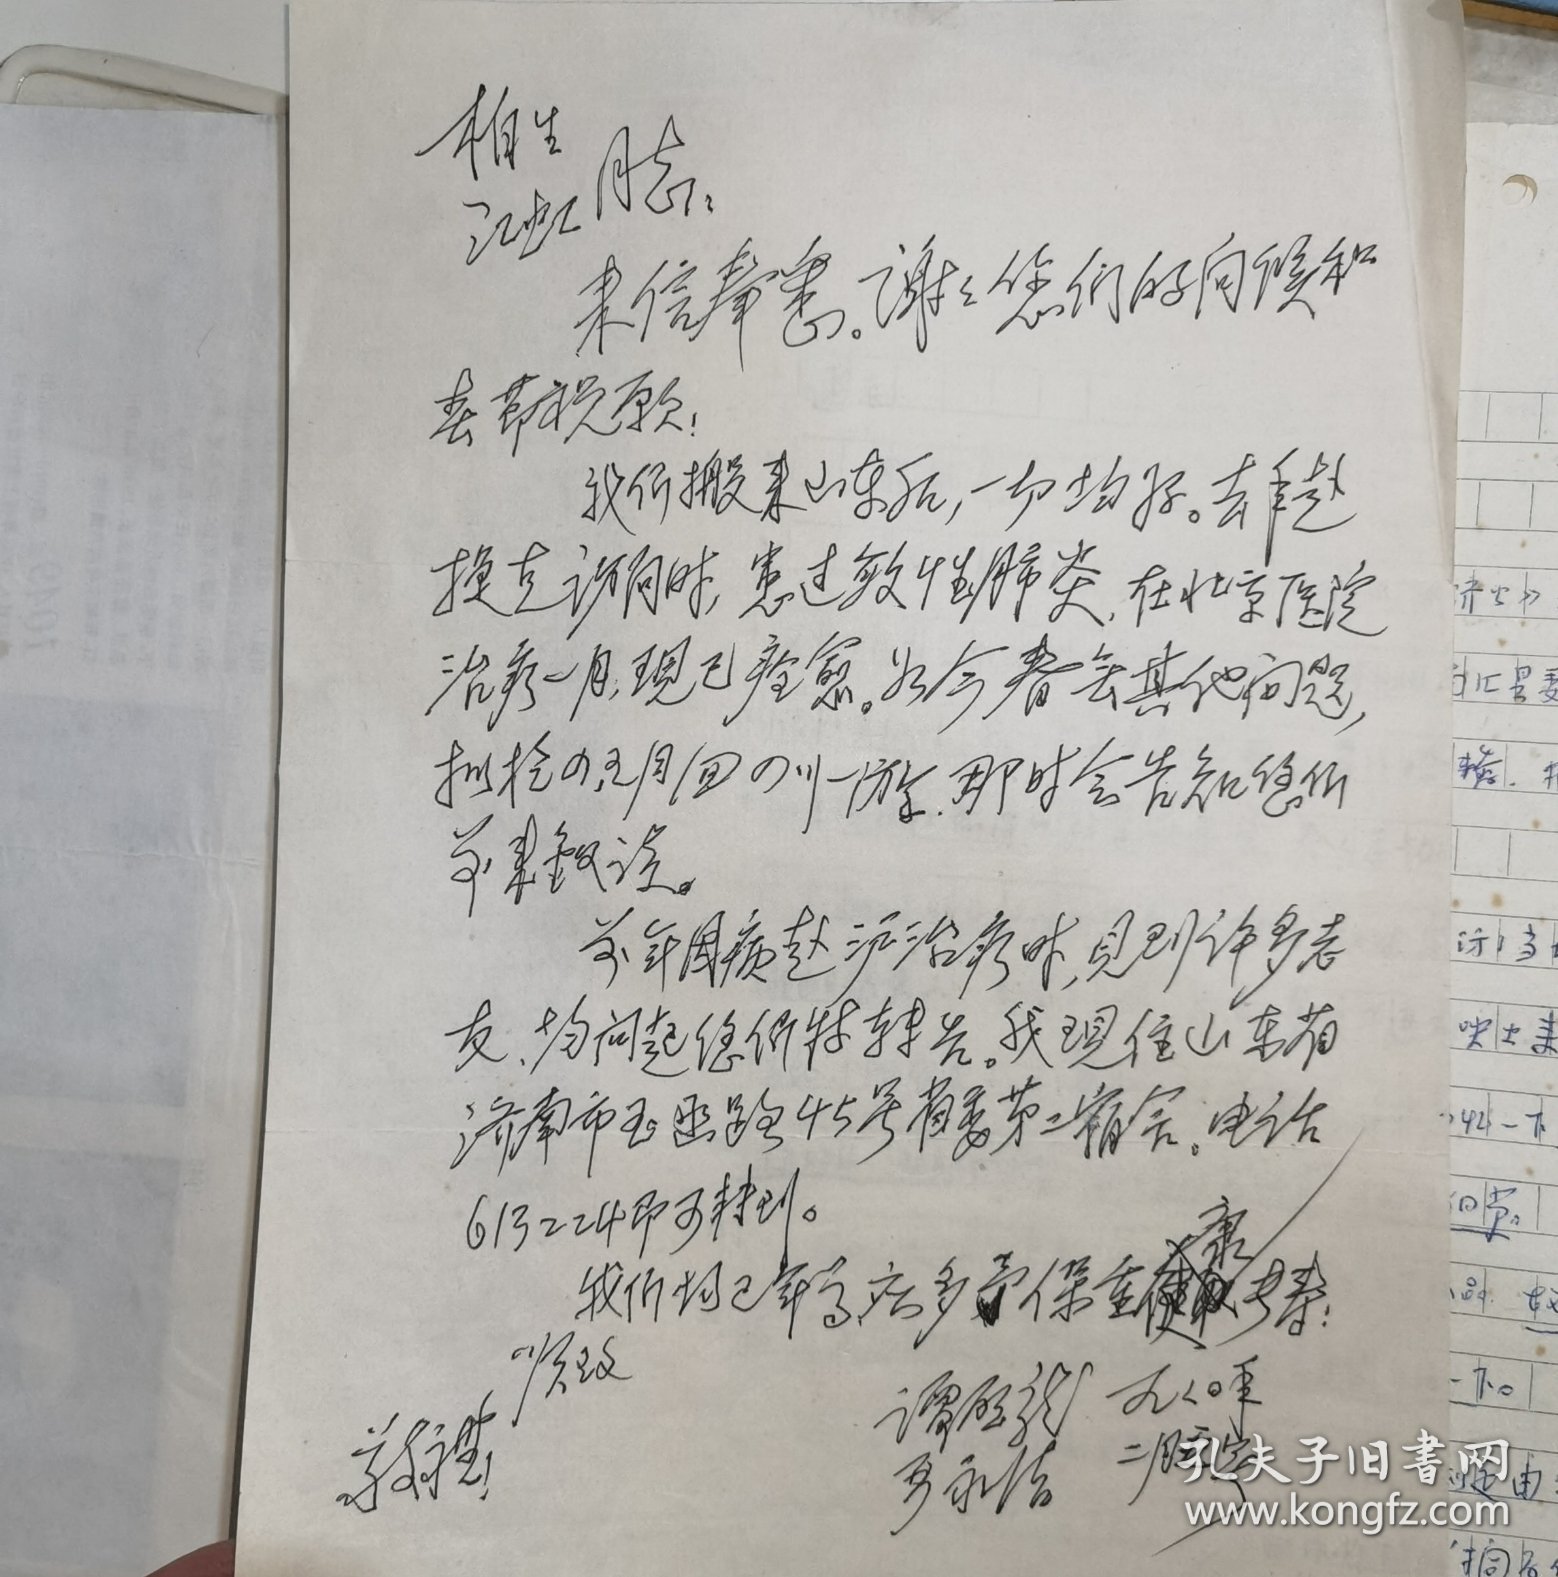 柏生
江虹 同志：
来信奉悉。谢谢您们的问候和
春节祝愿！
我们搬来山东后，一切均好。去年赴
捷克访问时，患过敏性肺炎，在北京医院
治疗一月，现已痊愈。如今春无其他问题，
拟于四、五月回四川一游，那时会告知您们
前来叙谈。
前年因病赴沪治疗时，见到许多老
友，均问起您们特转告。我现住山东省
济南市玉函路45号省委第二宿舍。电话
613224即可找到。
我们均已年高，应多予保重健康长寿！
顺致
敬礼！
谭启龙
严永洁
九〇年
二月
孔夫子旧书网
www.kongfz.com